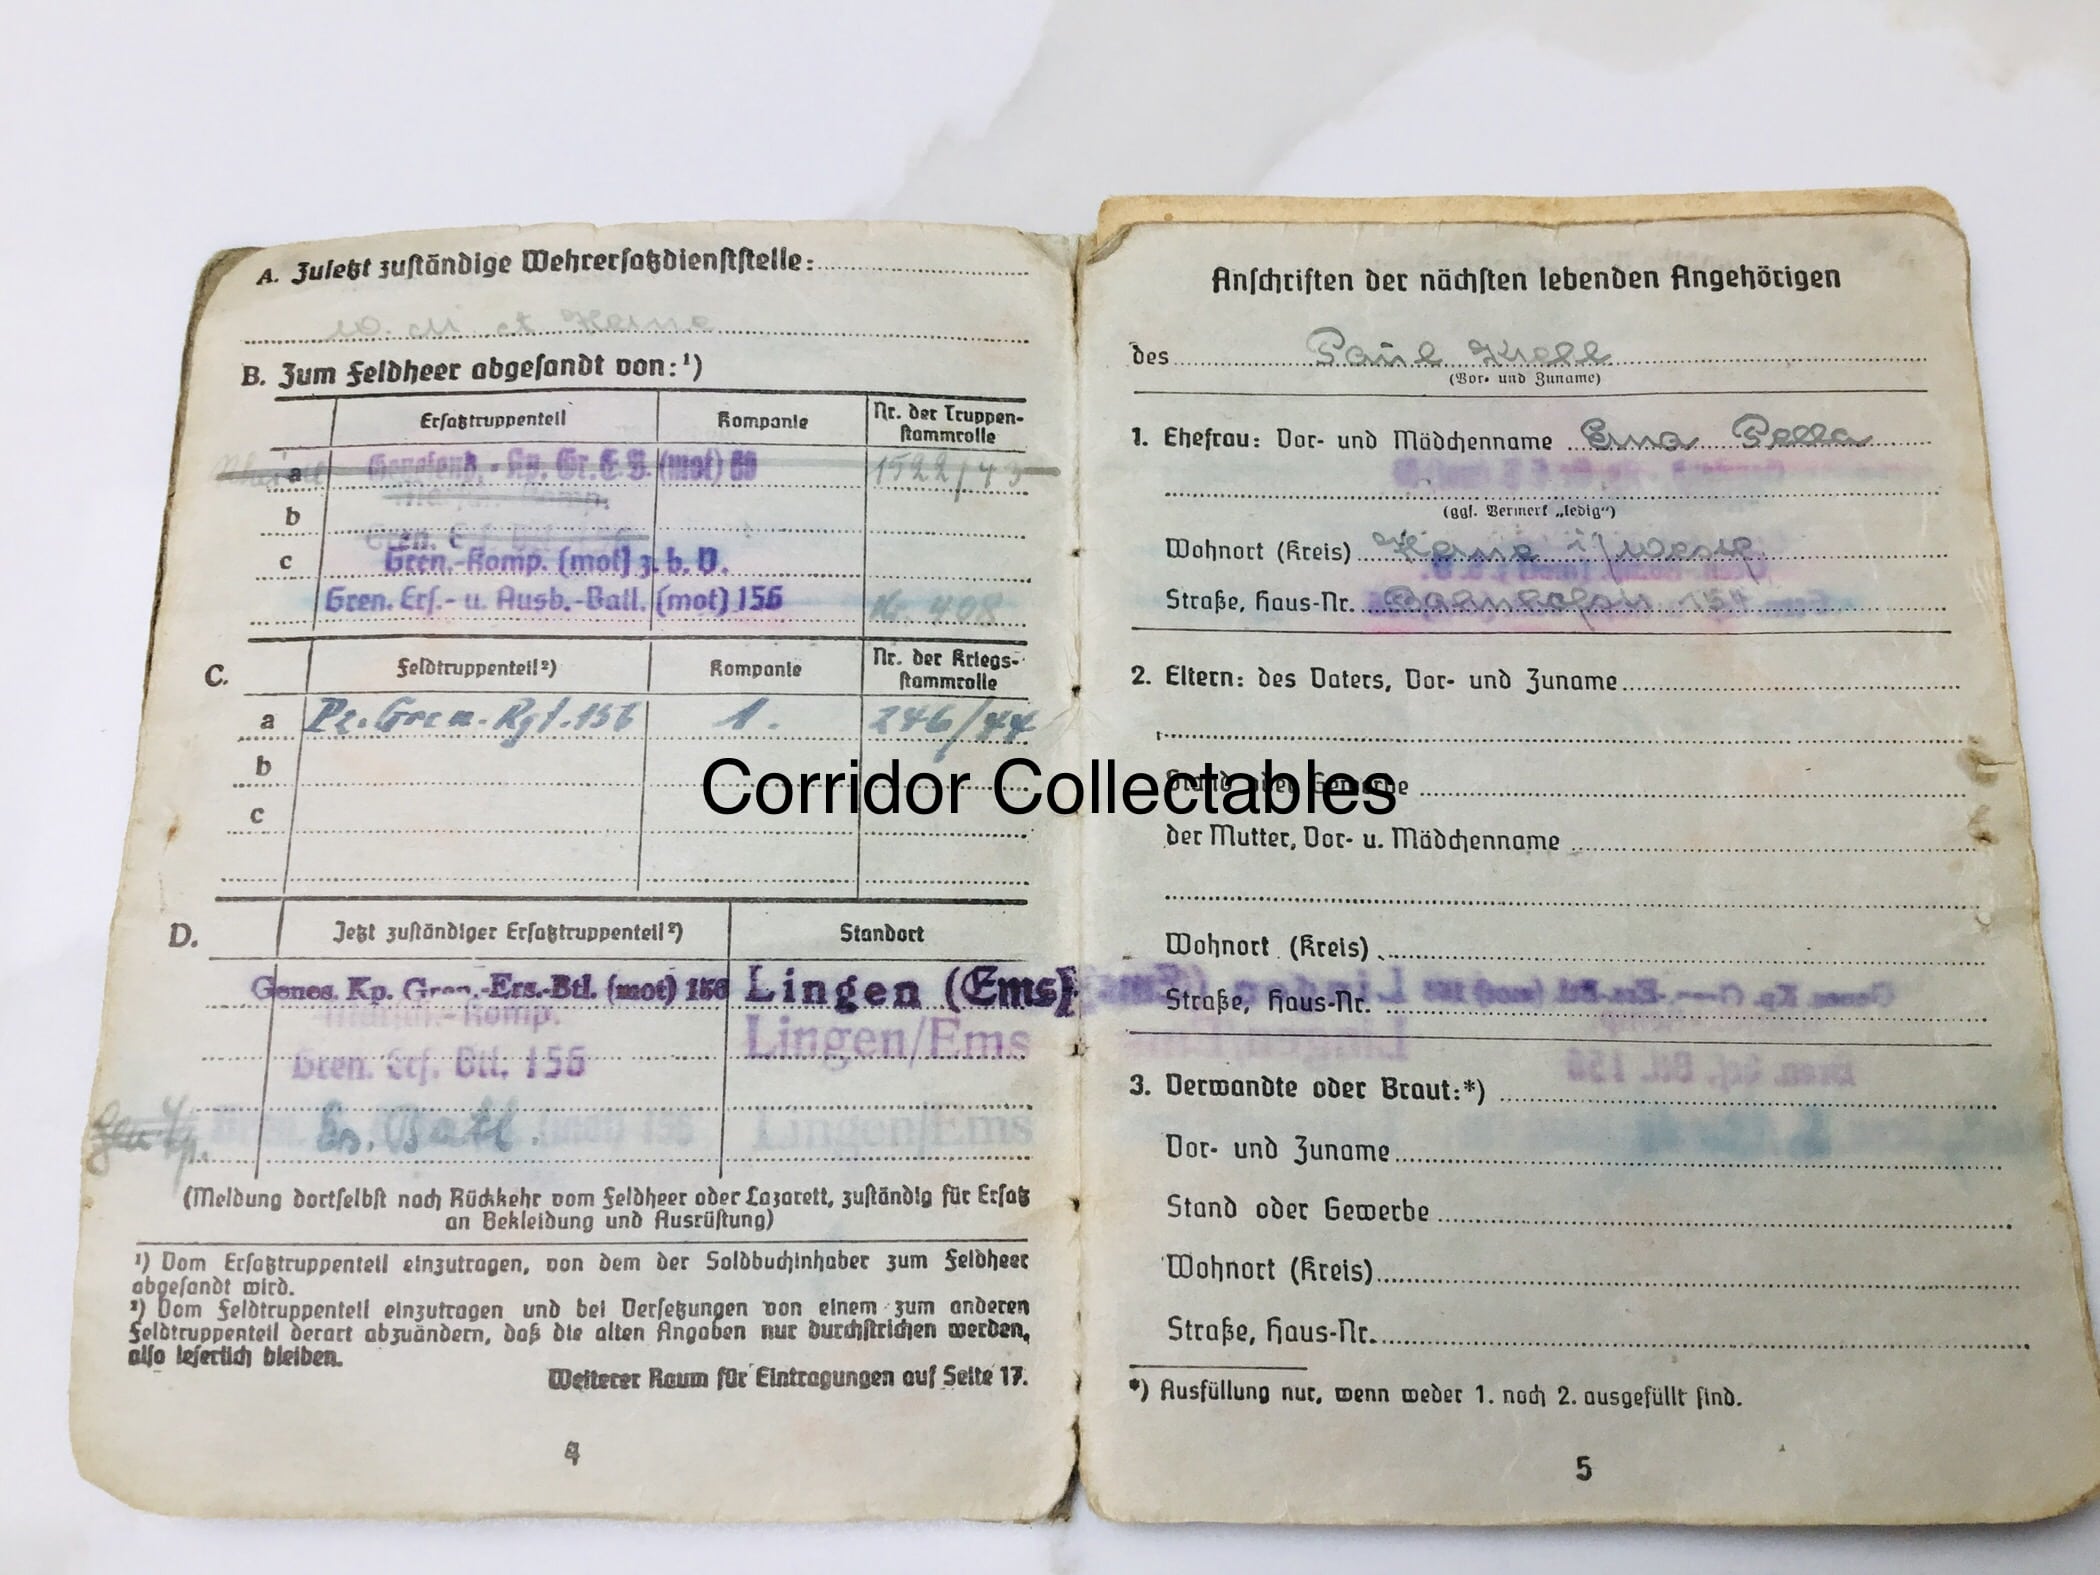 A. Zuletzt zuständige Wehrersatzdienststelle:
B. Zum Feldheer abgesandt von:¹)
Ersatztruppenteil Kompanie Nr. der Truppen-
stammrolle
a Genesend.-Kp. Gr.E.B. (mot) 60 1522/43
b
Gren. 
c Gren.-Komp. (mot) z. b. V.
Gren. Ers.- u. Ausb.-Batl. (mot) 156 Nr. 408
C. Feldtruppenteil²) Kompanie Nr. der Kriegs-
stammrolle
a Pz. Gren. Rgt. 156 1. 246/44
b
c
D. Jetzt zuständiger Ersatztruppenteil²) Standort
Genes. Kp. Gren.-Ers.-Btl. (mot) 156 Lingen (Ems)
Komp. Lingen/Ems
Gren. Ers. Btl. 156
Batl. Lingen/Ems
(Meldung dortselbst nach Rückkehr vom Feldheer oder Lazarett, zuständig für Ersatz
an Bekleidung und Ausrüstung)
¹) Vom Ersatztruppenteil einzutragen, von dem der Soldbuchinhaber zum Feldheer
abgesandt wird.
²) Vom Feldtruppenteil einzutragen und bei Versetzungen von einem zum anderen
Feldtruppenteil derart abzuändern, daß die alten Angaben nur durchstrichen werden,
also leserlich bleiben.
Weiterer Raum für Eintragungen auf Seite 17.
4
Anschriften der nächsten lebenden Angehörigen
des Paul Krell
(Vor- und Zuname)
1. Ehefrau: Vor- und Mädchenname Erna Pella
(ggf. Vermerk „ledig")
Wohnort (Kreis) Herne i/Westf
Straße, Haus-Nr. Bahnhofstr 154
2. Eltern: des Vaters, Vor- und Zuname
Stand oder Gewerbe
der Mutter, Vor- u. Mädchenname
Wohnort (Kreis)
Straße, Haus-Nr.
3. Verwandte oder Braut:*)
Vor- und Zuname
Stand oder Gewerbe
Wohnort (Kreis)
Straße, Haus-Nr.
*) Ausfüllung nur, wenn weder 1. noch 2. ausgefüllt sind.
5
Corridor Collectables